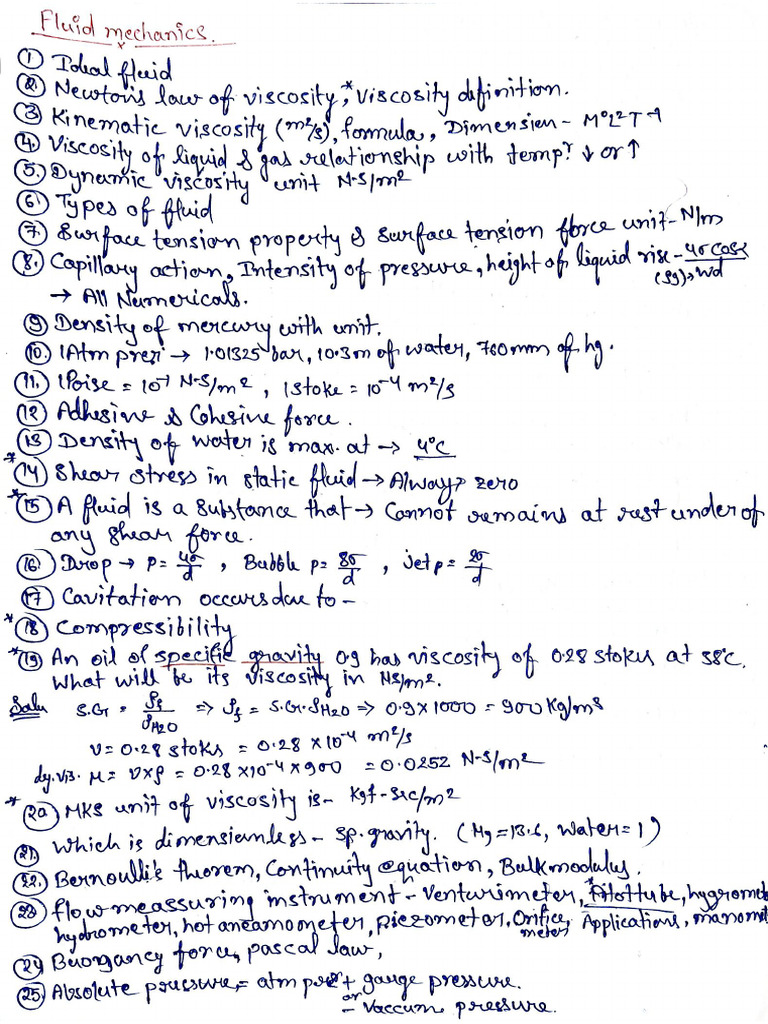 Fluid mechanics.
① Ideal fluid
② Newton's law of viscosity, *Viscosity definition.
③ Kinematic viscosity (m²/s), formula, Dimension - M⁰L²T⁻¹
④ Viscosity of liquid & gas relationship with temp? ↓ or ↑
⑤ Dynamic viscosity unit N-S/m²
⑥ Types of fluid
⑦ Surface tension property & surface tension force unit - N/m
⑧ Capillary action, Intensity of pressure, height of liquid rise - 4σ cosα / (ρg)→wd
→ All Numericals.
⑨ Density of mercury with unit.
⑩ 1Atm pres. → 1.01325 bar, 10.3m of water, 760mm of hg.
⑪ 1Poise = 10⁻¹ N-S/m², 1stoke = 10⁻⁴ m²/s
⑫ Adhesive & Cohesive force.
⑬ Density of water is max. at → 4°C
*⑭ Shear stress in static fluid → Always zero
*⑮ A fluid is a substance that → Cannot remains at rest under of
any shear force.
⑯ Drop → P = 4σ/d, Bubble p = 8σ/d, jet p = 2σ/d
⑰ Cavitation occurs due to -
*⑱ Compressibility
*⑲ An oil of specific gravity 0.9 has viscosity of 0.28 stokes at 38°C.
What will be its viscosity in NS/m².
Soln S.Gr = ρf/ρH2O => ρf = S.Gr.ρH2O => 0.9 x 1000 = 900 Kg/m³
ν = 0.28 stoks = 0.28 x 10⁻⁴ m²/s
dy. vis. μ = ν x ρ = 0.28 x 10⁻⁴ x 900 = 0.0252 N-S/m²
*⑳ MKS unit of viscosity is - Kgf-sec/m²
21. Which is dimensionless - sp. gravity. (Hg = 13.6, Water = 1)
22. Bernoulli's theorem, Continuity equation, Bulk modulus.
23 flow meassuring instrument - Venturimeter, *Pitot tube, hygromet
hydrometer, hot aneamoometer, Piezometer, Orifice meter, Applications, manomet
24 Buoyancy force, pascal law,
25. Absolute pressure = atm pre + gauge pressure.
or - Vaccum pressure.